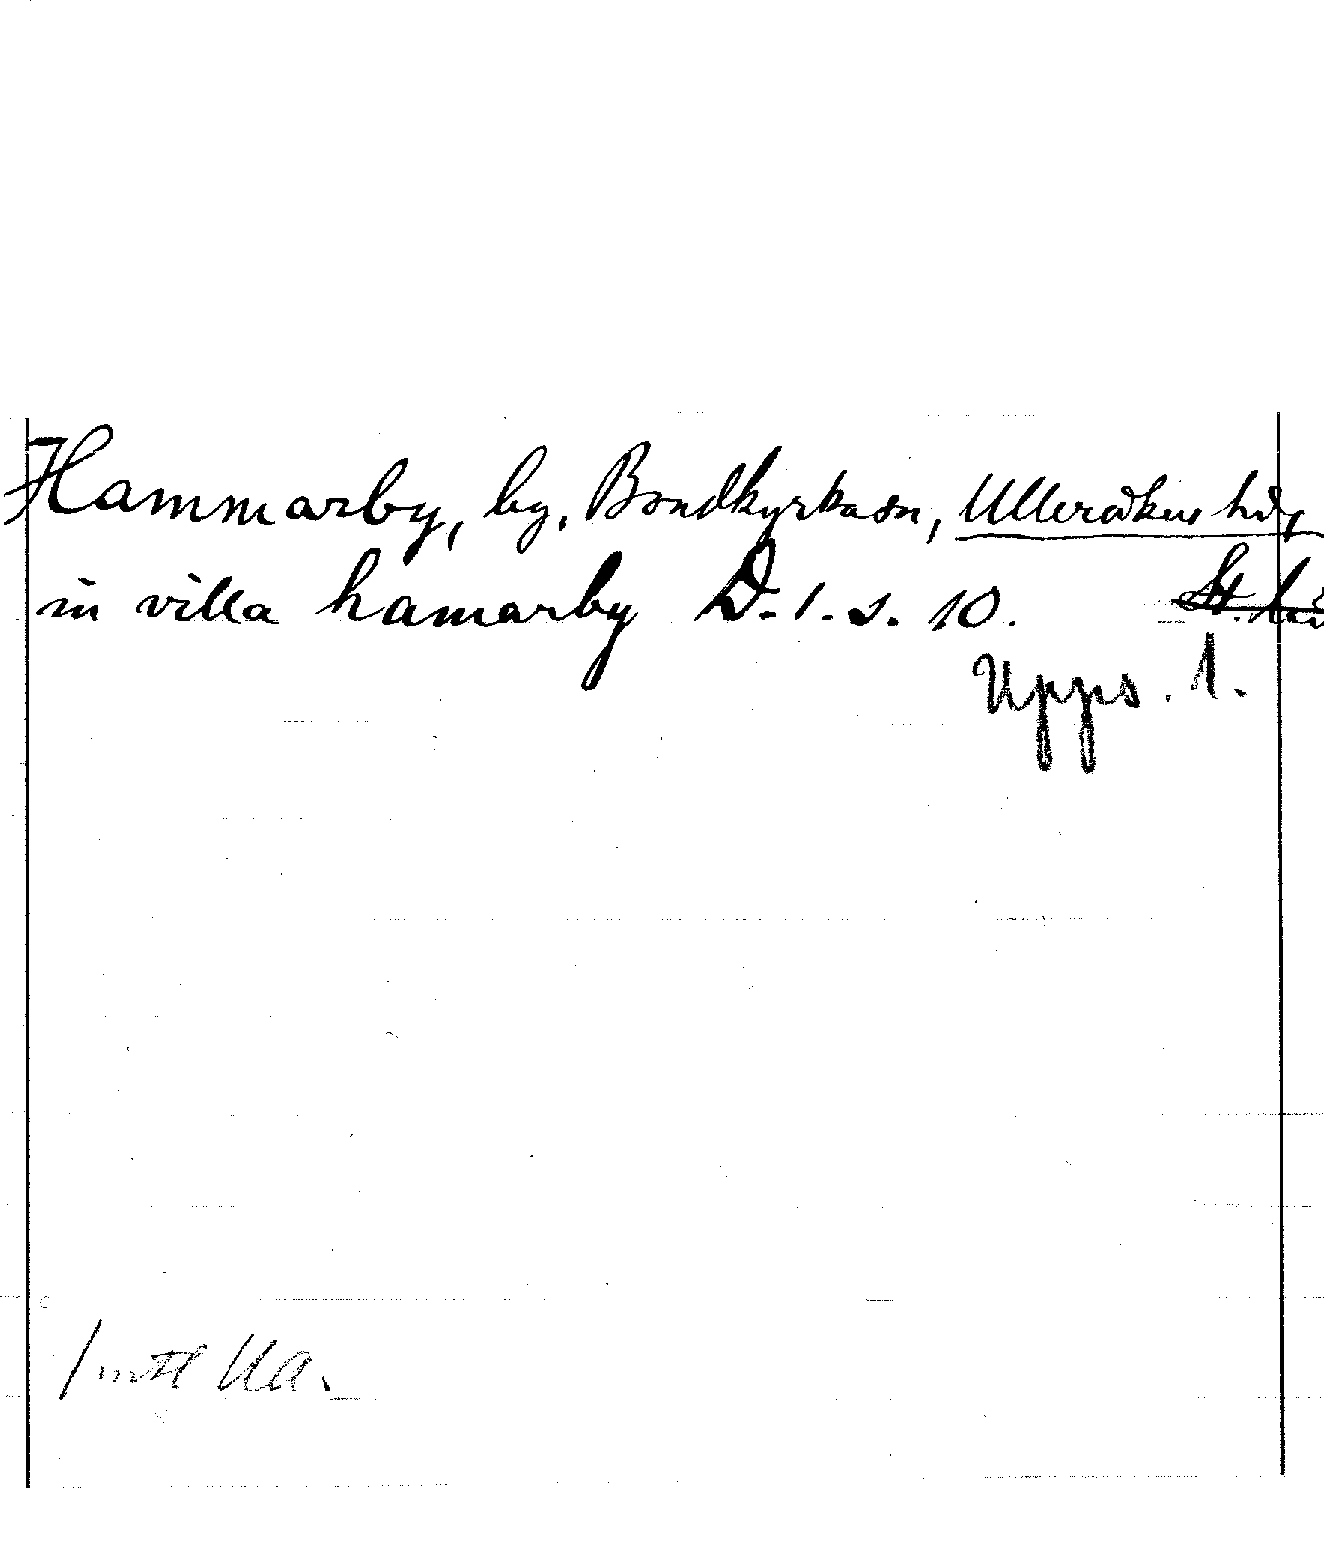 Hammarby, by, Bondkyrkasn, Ulleråkers hd,
in villa hamarby D. 1. s. 10. St. lä
Upps. 1.
UA.